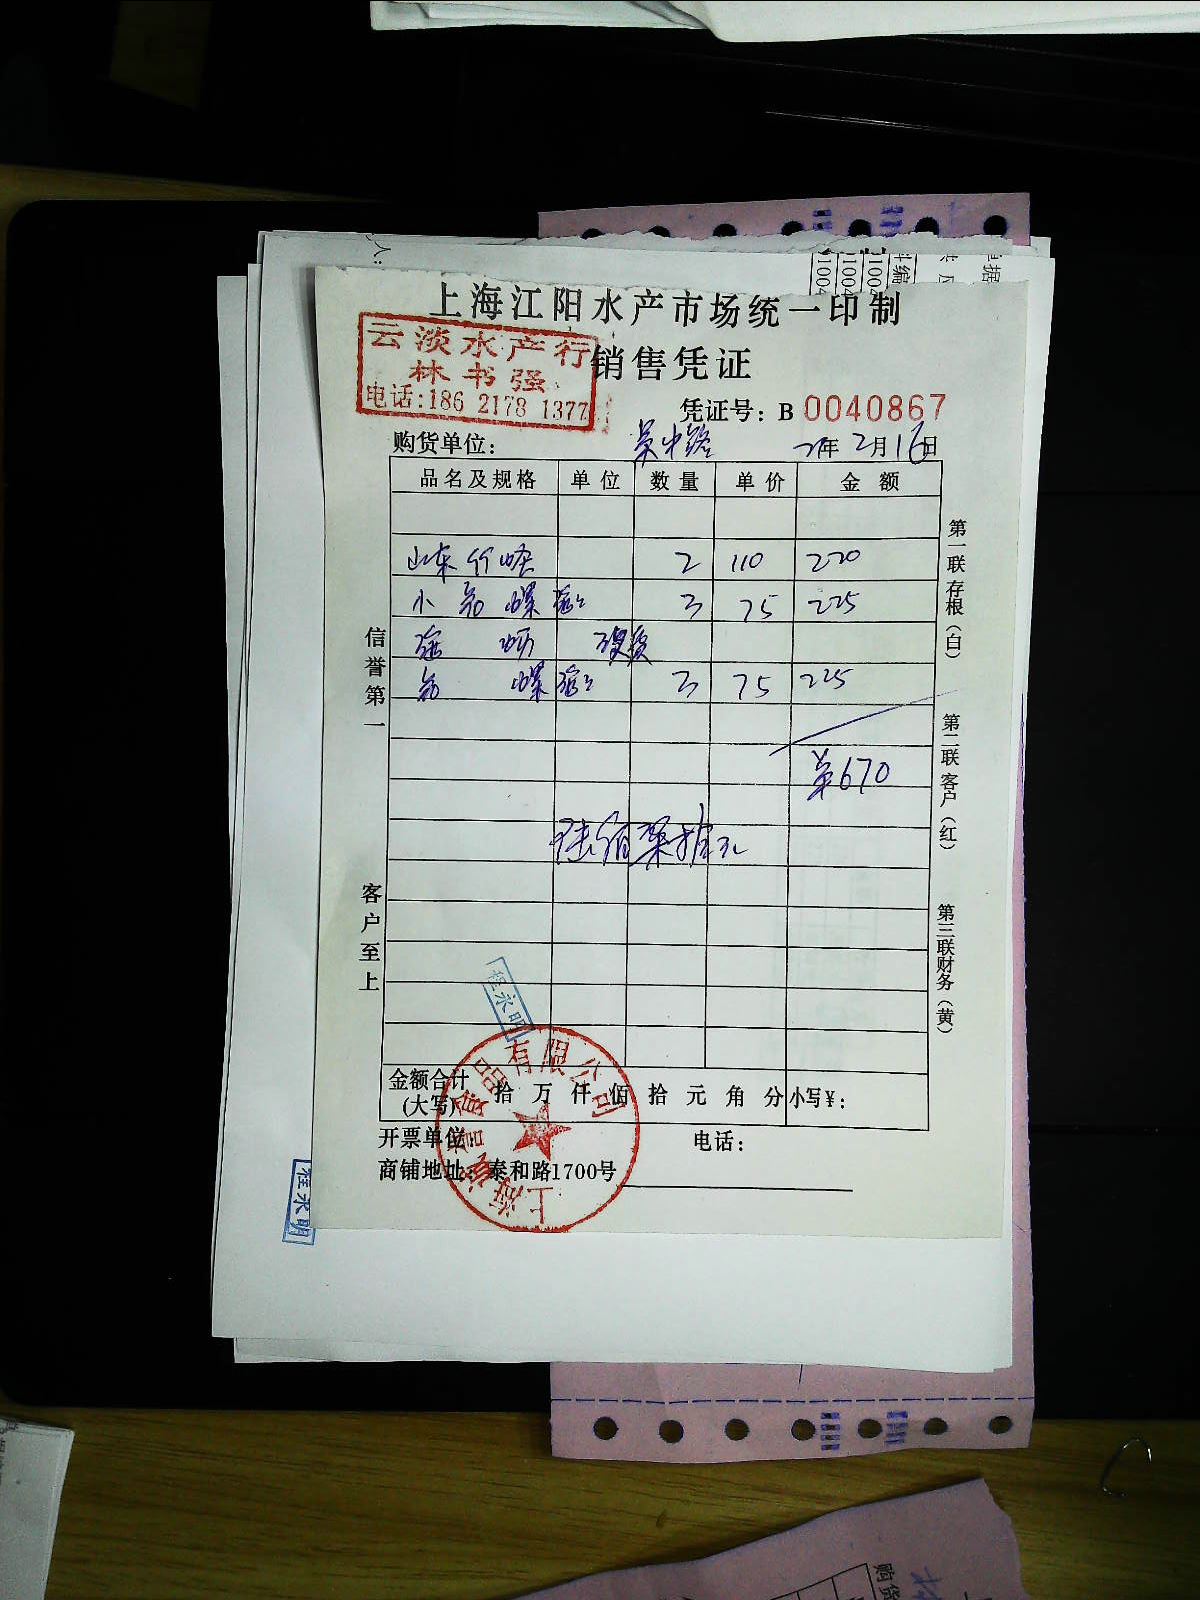 上海江阳水产市场统一印制
云淡水产行
林书强
电话:186 2178 1377
销售凭证
凭证号: B 0040867
购货单位: 吴中路 21年2月16日
品名及规格 单位 数量 单价 金额
山东竹蛏 2 110 220
小 螺 3 75 225
螺 3 75 225
共670
陆佰柒拾元
信誉第一
客户至上
第一联存根(白)
第二联客户(红)
第三联财务(黄)
程永明
金额合计(大写) 拾 万 仟 佰 拾 元 角 分 小写¥:
开票单位 电话:
商铺地址: 泰和路1700号
食品有限公司
上海
程永明
购货